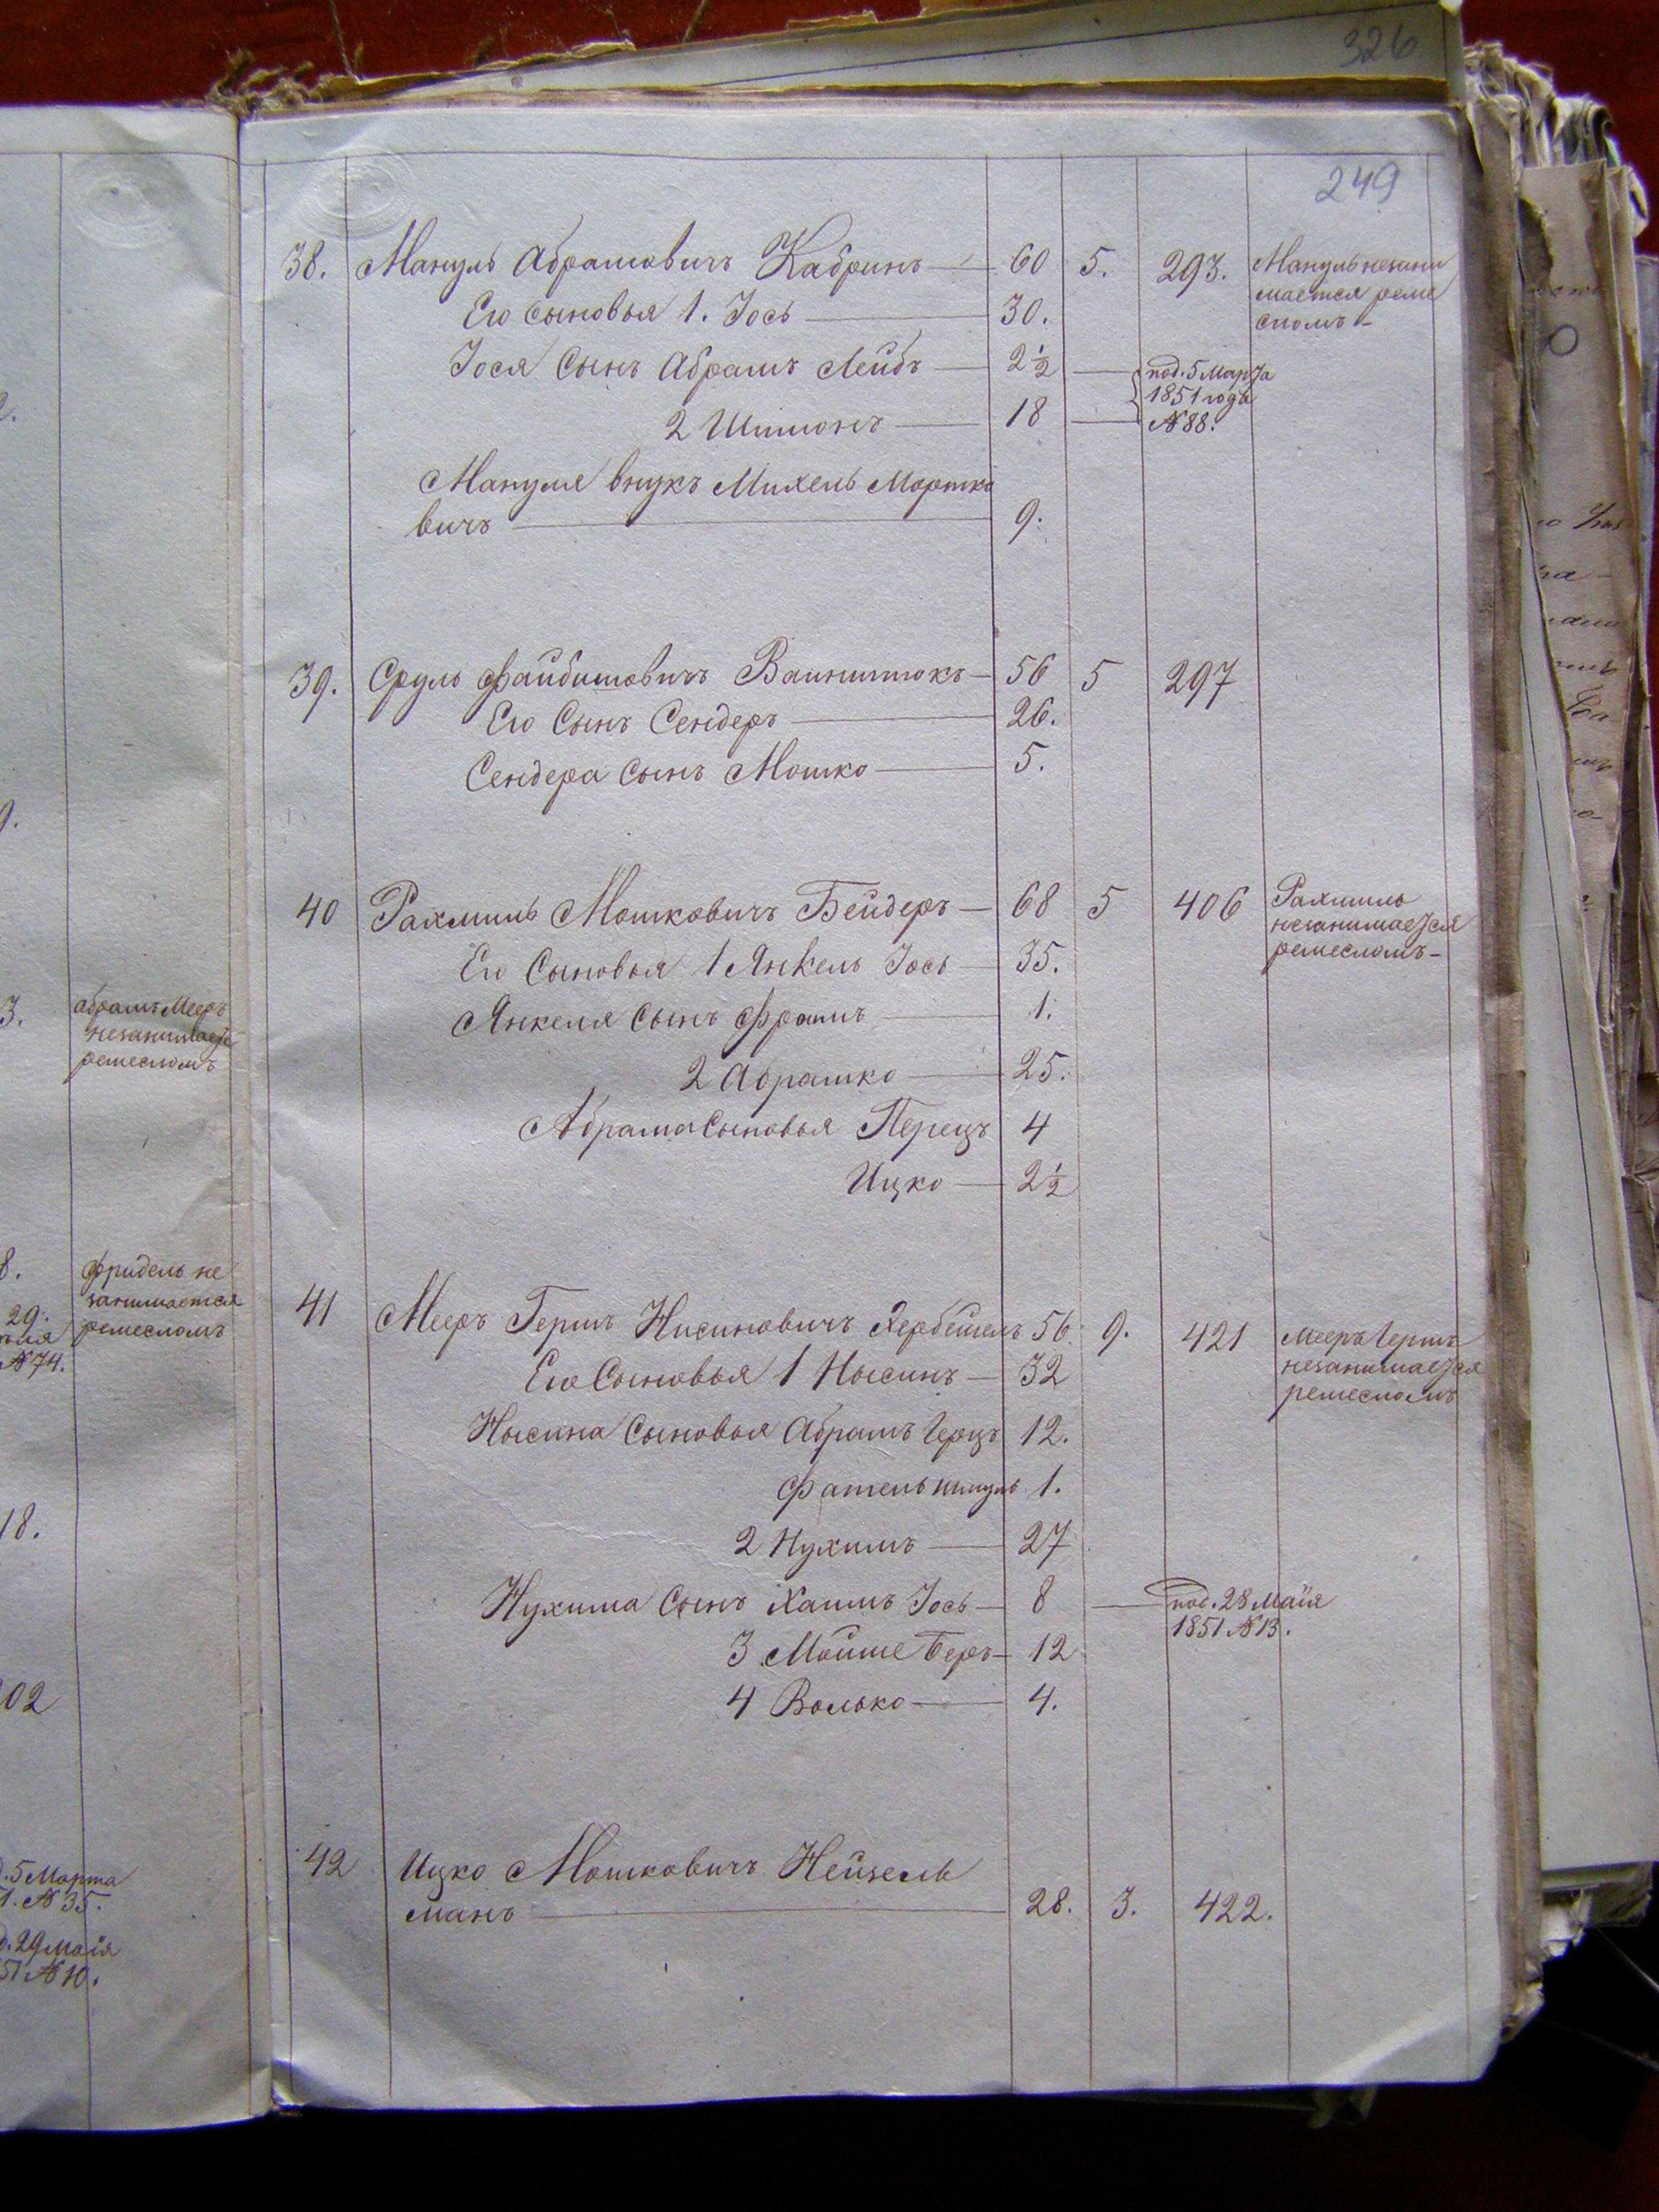 326
249
38. Мануль Абрамовичъ Кабринъ 60 5. 293. Мануль незани
мается реме
сломъ
Его сыновья 1. Іось 30.
Іося Сынъ Абрамъ Лейбъ 2½ под. 5 Марта
1851 года
№ 88.
2 Шимонъ 18
Мануля внукъ Михель Мортко
вичъ 9.
39. Сруль Файбишовичъ Ваинштокъ 56 5 297
Его Сынъ Сендеръ 26.
Сендера сынъ Мошко 5.
40 Рахмиль Мошковичъ Бейдеръ 68 5 406 Рахмиль
незанимается
ремесломъ
Его Сыновья 1 Янкель Іось 35.
Янкеля Сынъ Фроимъ 1.
2 Абрашко 25.
Абрама Сыновья Перецъ 4
Ицко 2½
41 Мееръ Гершъ Нисиновичъ 56 9. 421 Мееръ Гершъ
незанимается
ремесломъ
Его Сыновья 1 Нысинъ 32
Нысина Сыновья Абрамъ Герцъ 12.
1.
2 Нухимъ 27
Нухима Сынъ Хаимъ Іось 8 под. 28 Маія
1851 № 13.
3 Мойше Беръ 12
4 Волько 4.
42 Ицко Мошковичъ Нейзель
манъ 28. 3. 422.
3. Абрамъ Мееръ
незанимает
ремесломъ
8. Фридель не
занимается
ремесломъ
29.
№ 74.
18.
02
5 Марта
№ 35.
29 Маія
51 № 10.